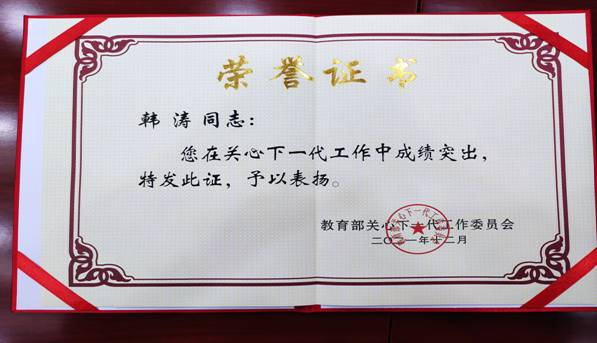 荣誉证书
韩涛同志：
您在关心下一代工作中成绩突出，
特发此证，予以表扬。
教育部关心下一代工作委员会
二〇一年十二月